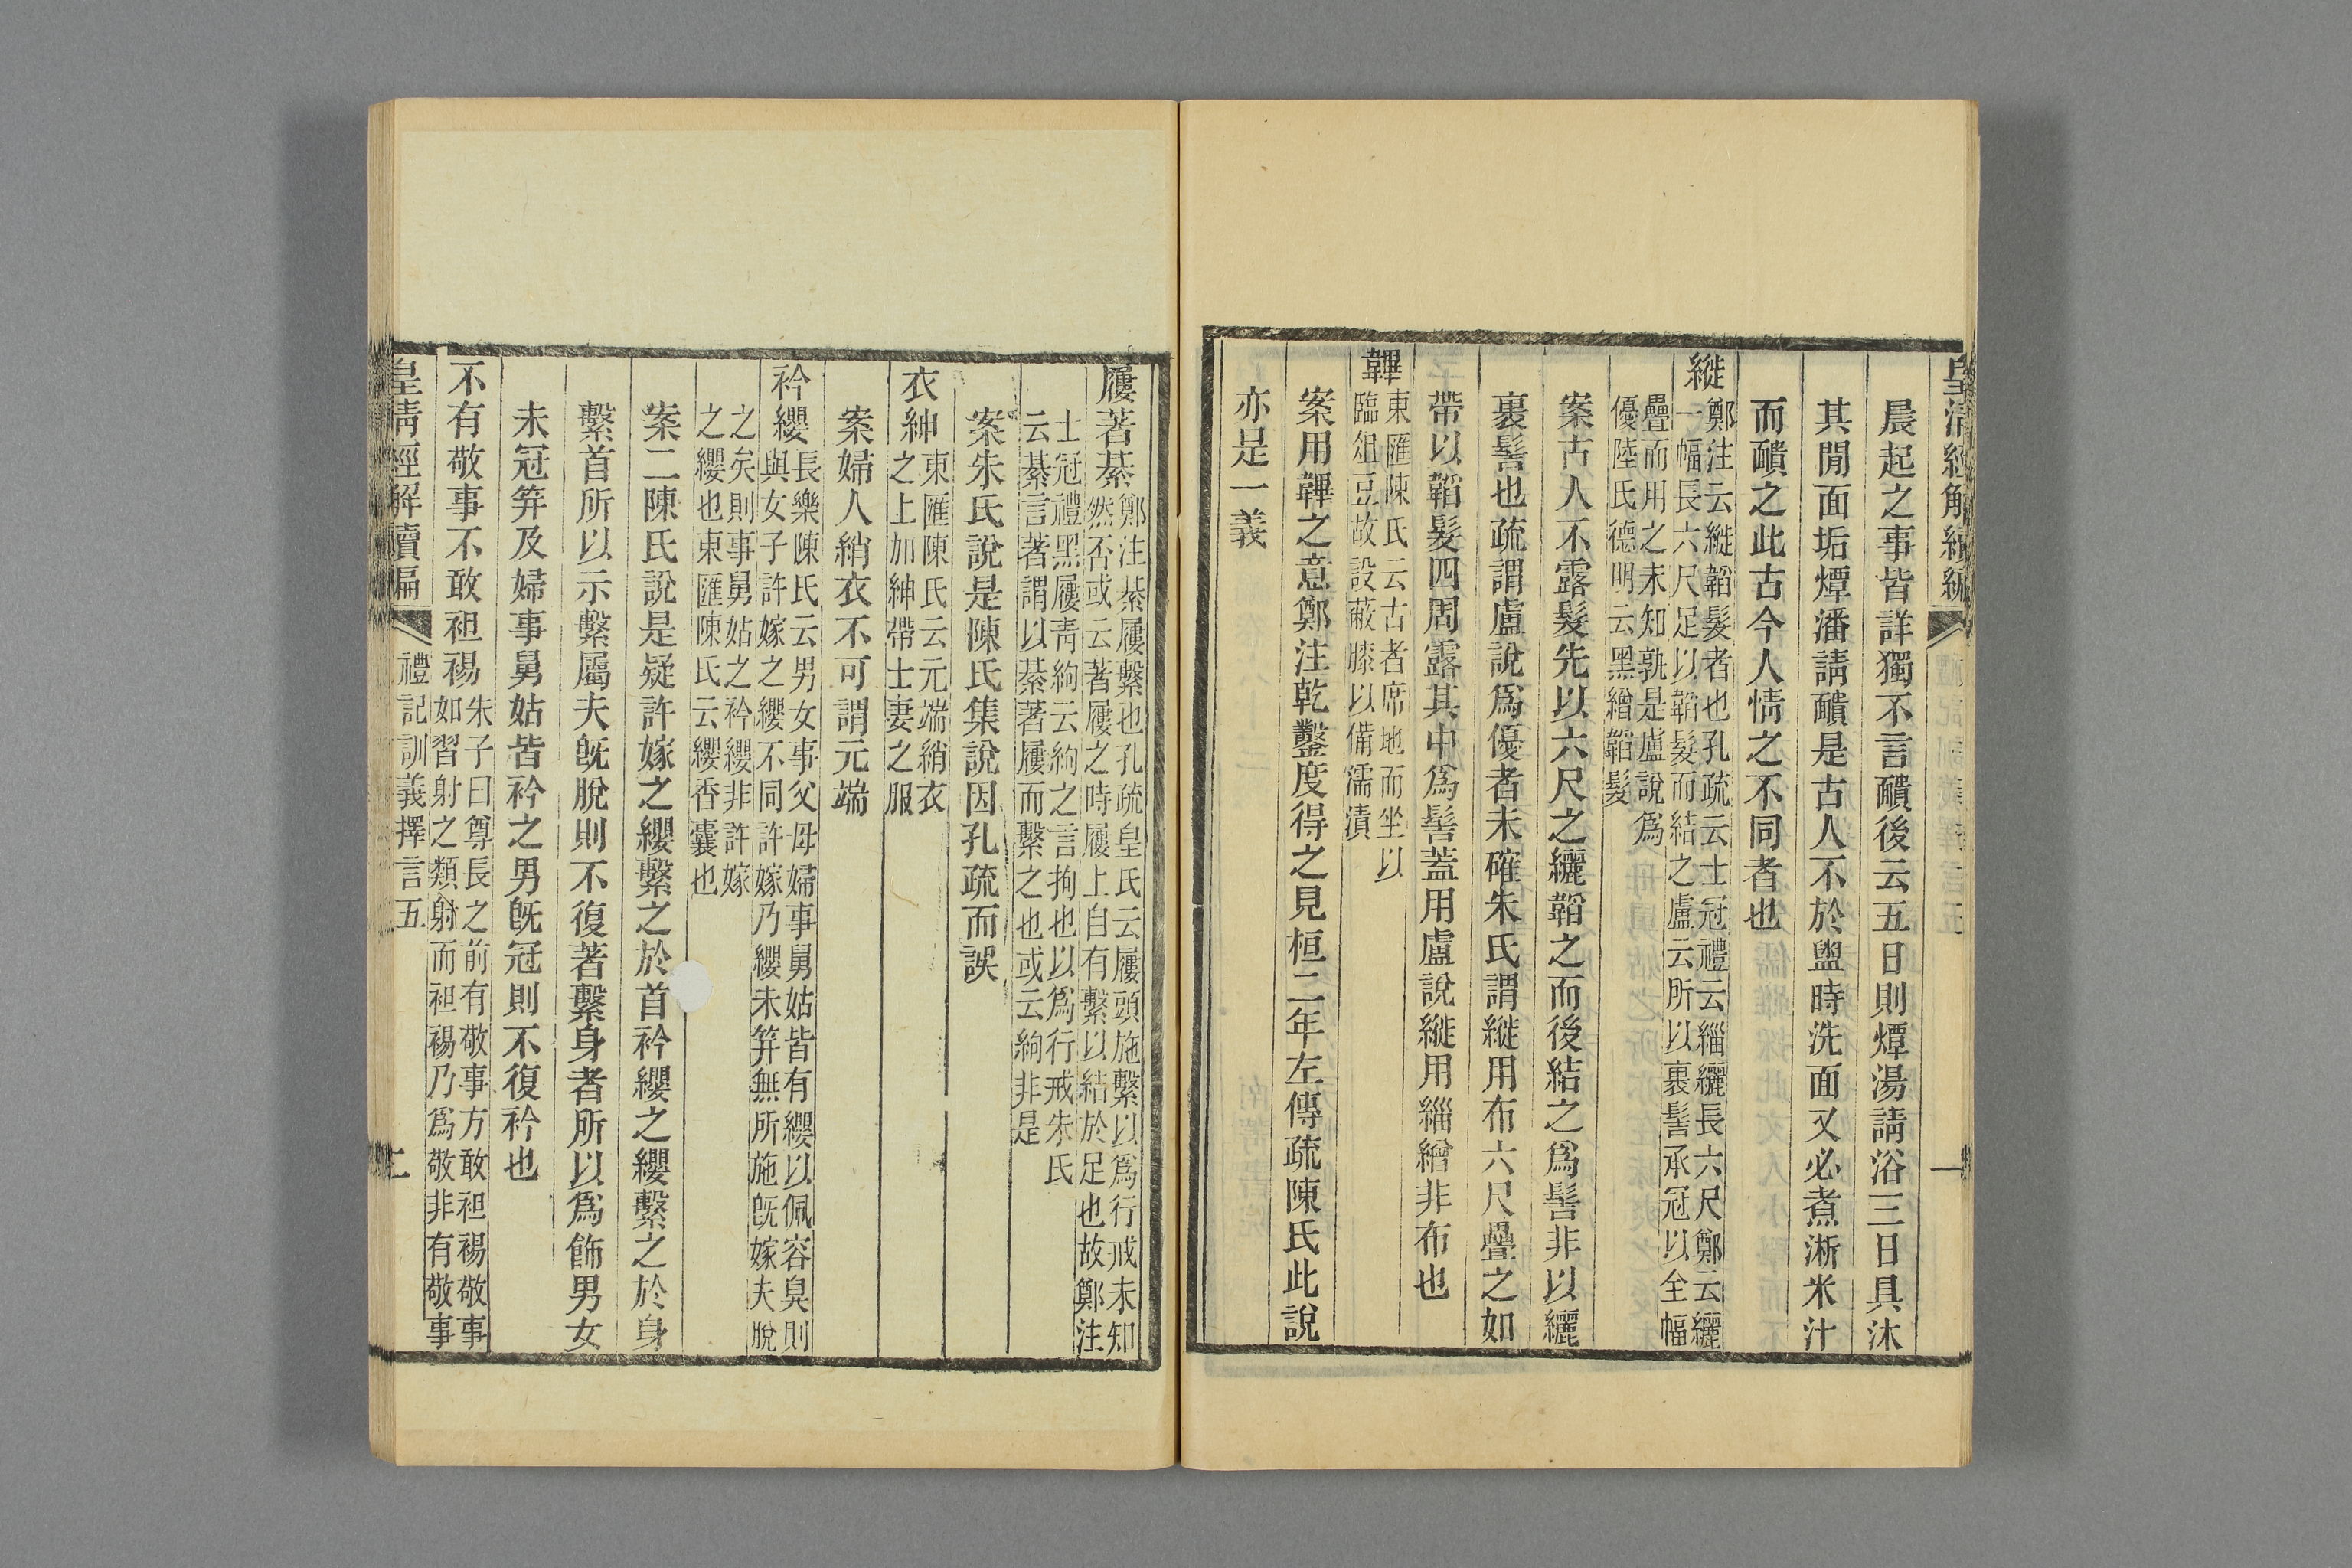 晨起之事皆詳獨不言靧後云五日則燂湯請浴三日具沐
其閒面垢燂潘請靧是古人不於盥時洗面又必煮淅米汁
而靧之此古今人情之不同者也
縰鄭注云縰韜髮者也孔疏云士冠禮云緇纚長六尺鄭云纚
一幅長六尺足以韜髮而結之盧云所以裹髻承冠以全幅
疊而用之未知孰是盧說爲
優陸氏德明云黑繒韜髮
案古人不露髮先以六尺之纚韜之而後結之爲髻非以纚
裹髻也疏謂盧說爲優者未確朱氏謂縰用布六尺疊之如
帶以韜髮四周露其中爲髻蓋用盧說縰用緇繒非布也
韠東匯陳氏云古者席地而坐以
臨俎豆故設蔽膝以備濡漬
案用韠之意鄭注乾鑿度得之見桓二年左傳疏陳氏此說
亦是一義
屨著綦鄭注綦屨繫也孔疏皇氏云屨頭施繫以爲行戒未知
然否或云著屨之時屨上自有繫以結於足也故鄭注
士冠禮黑屨靑絇云絇之言拘也以爲行戒朱氏
云綦言著謂以綦著屨而繫之也或云絇非是
案朱氏說是陳氏集說因孔疏而誤
衣紳東匯陳氏云元端綃衣
之上加紳帶士妻之服
案婦人綃衣不可謂元端
衿纓長樂陳氏云男女事父母婦事舅姑皆有纓以佩容臭則
與女子許嫁之纓不同許嫁乃纓未笄無所施旣嫁夫脫
之矣則事舅姑之衿纓非許嫁
之纓也東匯陳氏云纓香囊也
案二陳氏說是疑許嫁之纓繫之於首衿纓之纓繫之於身
繫首所以示繫屬夫旣脫則不復著繫身者所以爲飾男女
未冠笄及婦事舅姑皆衿之男旣冠則不復衿也
不有敬事不敢袒裼朱子曰尊長之前有敬事方敢袒裼敬事
如習射之類射而袒裼乃爲敬非有敬事
皇靑經解續編 禮記訓義擇言五 二